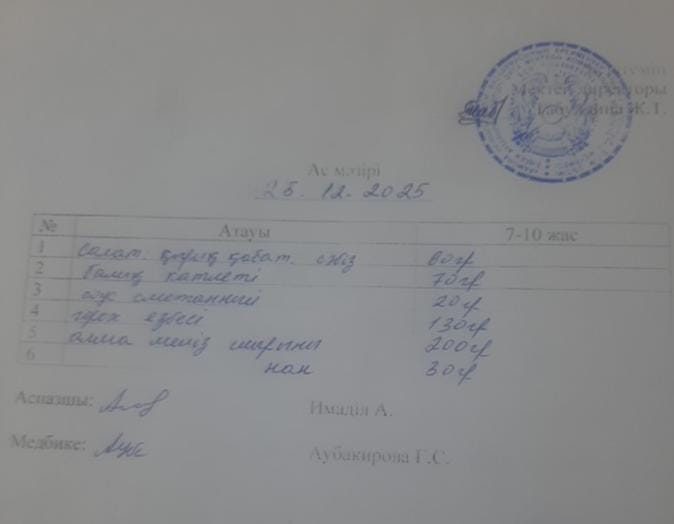 Мектеп директоры
Ж.Т.
Ас мәзірі
25. 12. 2025
№ Атауы 7-10 жас
1 салат: қырық қабат. сәбіз 60гр
2 балық катлеті 70гр
3 соус сметанный 20гр
4 горох езбесі 130гр
5 алма мейіз шырыны 200гр
6 нан 30гр
Аспазшы: Имаділ А.
Медбике: Аубакирова Г.С.